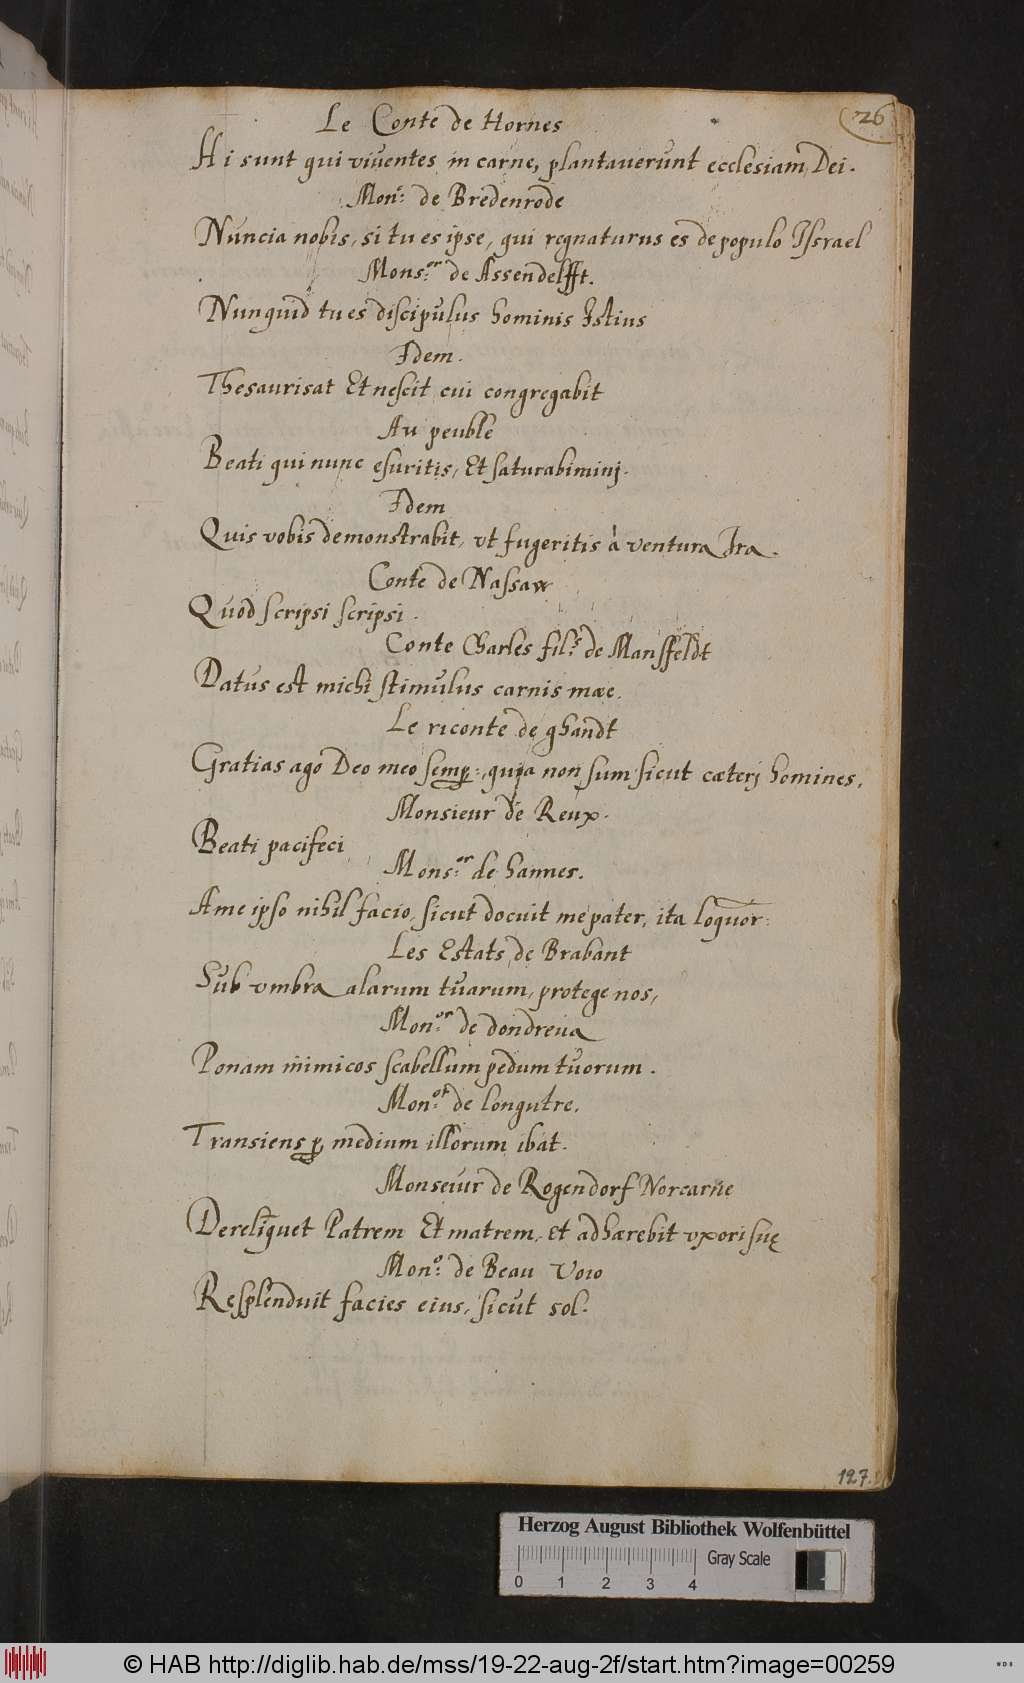 26
Le Conte de Hornes
Hi sunt qui viventes in carne, plantaverunt ecclesiam Dei.
Monr: de Bredenrode
Nuncia nobis, si tu es ipse, qui regnaturus es de populo Israel
Mons:or de Assendelfft.
Nunquid tu es discipulus hominis Istius
Idem.
Thesaurisat Et nescit cui congregabit
Au peuble
Beati qui nunc esuritis, Et saturabiminj.
Idem
Quis vobis demonstrabit, vt fugeritis à ventura Ira.
Conte de Nassaw
Quod scripsi scripsi.
Conte Charles fil:s de Mansffeldt
Datus est michi stimulus carnis mæ.
Le viconte de ghandt
Gratias ago Deo meo semp:, quia non sum sicut cæterj homines,
Monsieur de Reux.
Beati pacifeci
Mons:or de hannes.
A me ipso nihil facio, sicut docuit me pater, ita loquor:
Les Estats de Brabant
Sub vmbra alarum tuarum, protege nos,
Mon:or de dondreua
Ponam inimicos scabellum pedum tuorum.
Mon:or de longutre.
Transiens p medium illorum ibat.
Monseiur de Rogendorf Norcarne
Derelinquet Patrem Et matrem, Et adhærebit vxori suę
Mon:o de Beau Voio
Resplenduit facies eius, sicut sol.
127.
Herzog August Bibliothek Wolfenbüttel
Gray Scale
0 1 2 3 4
© HAB http://diglib.hab.de/mss/19-22-aug-2f/start.htm?image=00259